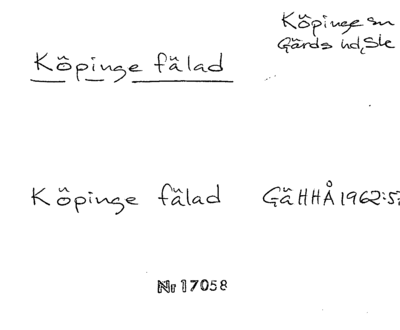 Köpinge sn
Gärds hd, Skc
Köpinge fälad
Köpinge fälad GäHHÅ 1962:5
Nr 17058